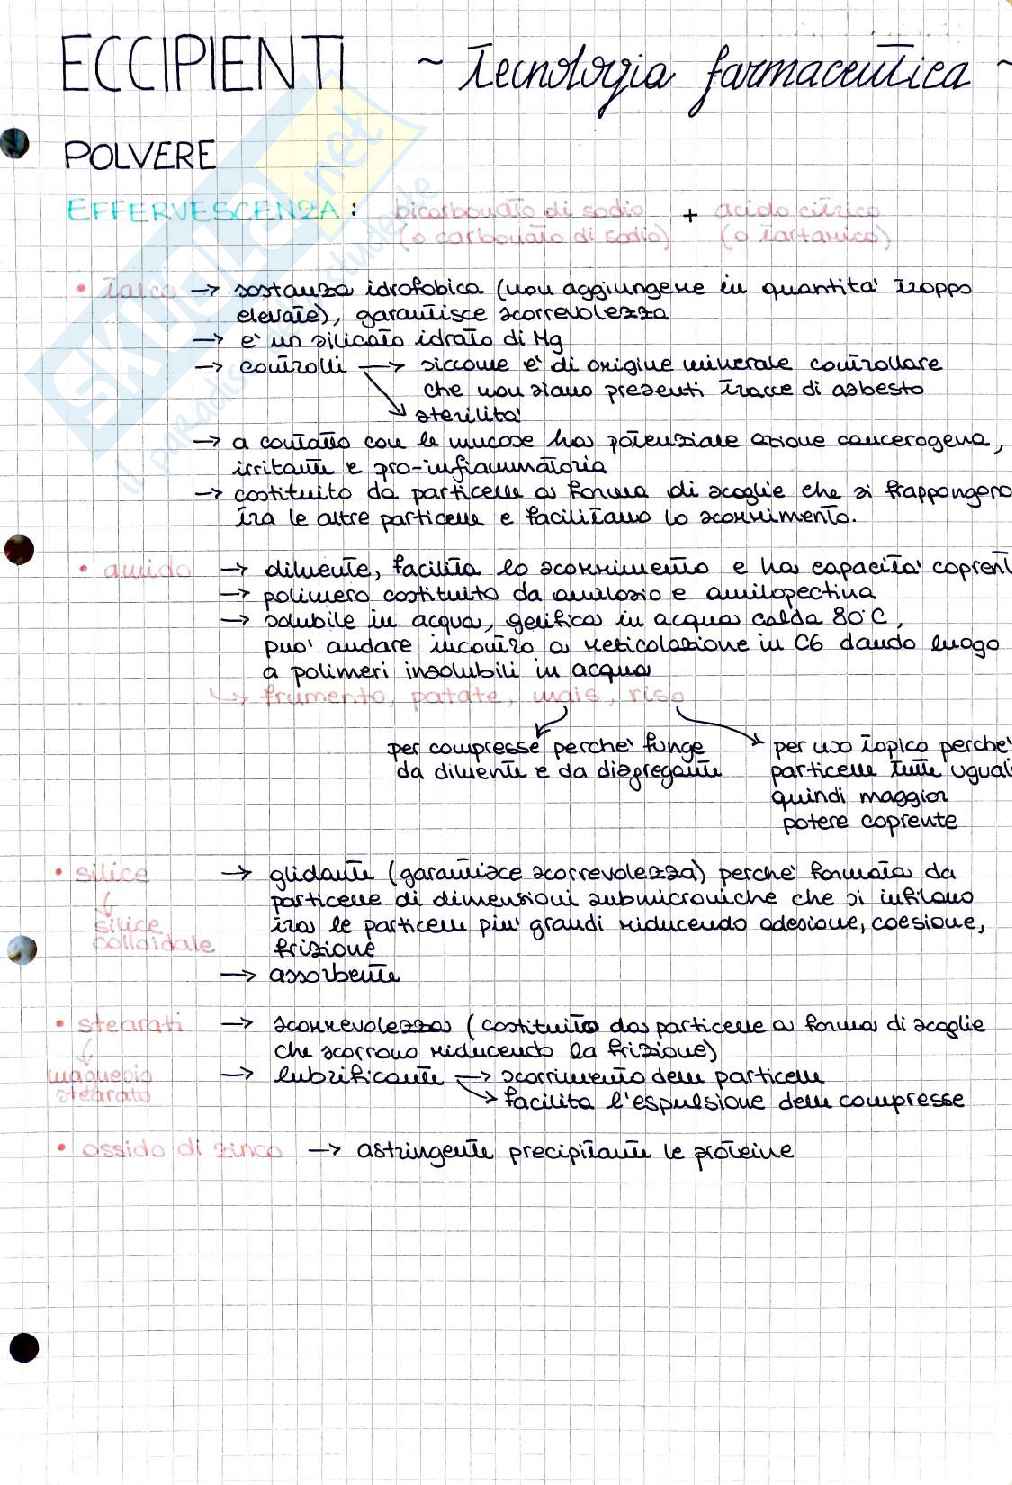 ECCIPIENTI ~ Tecnologia farmaceutica ~
POLVERE
EFFERVESCENZA: bicarbonato di sodio + acido citrico
(o carbonato di sodio) (o tartarico)
• talco → sostanza idrofobica (non aggiungere in quantita' troppo
elevate), garantisce scorrevolezza
→ e' un silicato idrato di Mg
→ controlli → siccome e' di origine minerale controllare
che non siano presenti tracce di asbesto
↘ sterilita'
→ a contatto con le mucose ha potenziale azione cancerogena,
irritante e pro-infiammatoria
→ costituito da particelle a forma di scaglie che si frappongono
tra le altre particelle e facilitano lo scorrimento.
• amido → diluente, facilita lo scorrimento e ha capacita' coprent
→ polimero costituito da amilosio e amilopectina
→ solubile in acqua, gelifica in acqua calda 80°C,
puo' andare incontro a reticolazione in C6 dando luogo
a polimeri insolubili in acqua
↳ frumento, patate, mais, riso
per compresse perche' funge
da diluente e da disgregante
per uso topico perche'
particelle tutte uguali
quindi maggior
potere coprente
• silice → glidante (garantisce scorrevolezza) perche' formata da
particelle di dimensioni submicroniche che si infilano
silice tra le particelle piu' grandi riducendo adesione, coesione,
colloidale frizione
→ assorbente
• stearati → scorrevolezza (costituito da particelle a forma di scaglie
che scorrono riducendo la frizione)
magnesio → lubrificante → scorrimento delle particelle
stearato ↘ facilita l'espulsione delle compresse
• ossido di zinco → astringente precipitante le proteine
SKUOLA.net